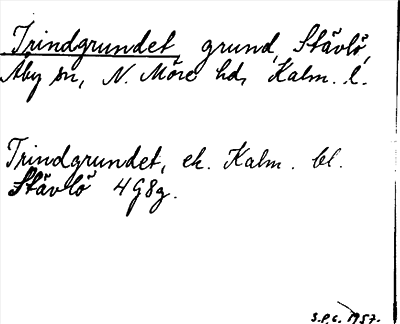 Trindgrundet grund, Stävlö,
Åby sn, N. Möre hd, Kalm. l.
Trindgrundet, ek. Kalm. bl.
Stävlö 4G8g.
S.P.G. 1957.